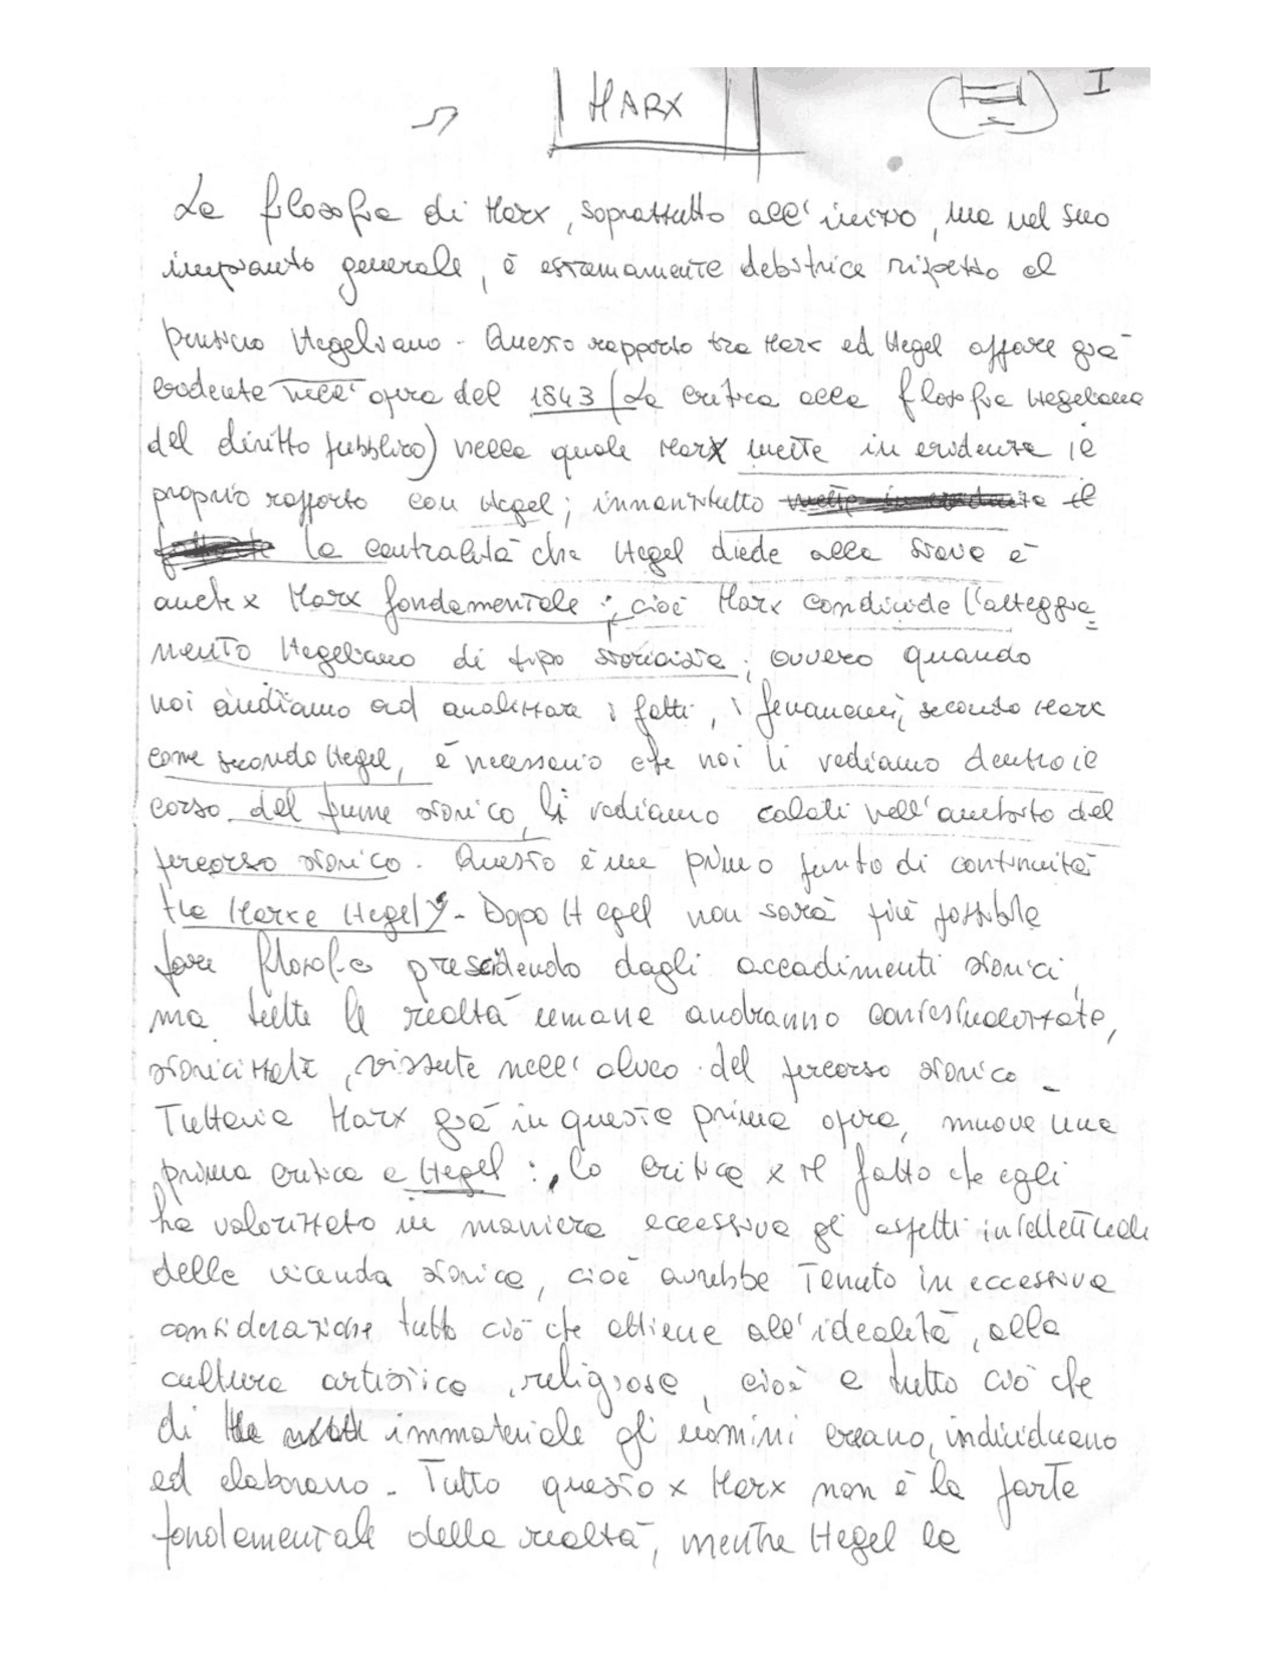 MARX
I
La filosofia di Marx, soprattutto all'inizio, ma nel suo
impianto generale, è estremamente debitrice rispetto al
pensiero Hegeliano - Questo rapporto tra Marx ed Hegel appare già
evidente nell'opera del 1843 (La critica alla filosofia Hegeliana
del diritto pubblico) nella quale Marx mette in evidenza il
proprio rapporto con Hegel; innanzitutto il
la centralità che Hegel diede alla storia è
anche x Marx fondamentale ; cioè Marx condivide l'atteggia
mento Hegeliano di tipo storicista ; ovvero quando
noi andiamo ad analizzare i fatti, i fenomeni, secondo Marx
come secondo Hegel, è necessario che noi li vediamo dentro il
corso del fiume storico, li vediamo calati nell'ambito del
percorso storico. Questo è un primo punto di continuità
tra Marx e Hegel - Dopo Hegel non sarà più possibile
fare filosofia prescindendo dagli accadimenti storici,
ma tutte le realtà umane andranno contestualizzate,
storicizzate, vissute nell'alveo del percorso storico -
Tuttavia Marx già in questa prima opera, muove una
prima critica a Hegel : lo critica x il fatto che egli
ha valorizzato in maniera eccessiva gli aspetti intellettuali
della vicenda storica, cioè avrebbe tenuto in eccessiva
considerazione tutto ciò che attiene all'idealità, alla
cultura artistica, religiosa, cioè a tutto ciò che
di immateriale gli uomini creano, individuano
ed elaborano - Tutto questo x Marx non è la parte
fondamentale della realtà, mentre Hegel la